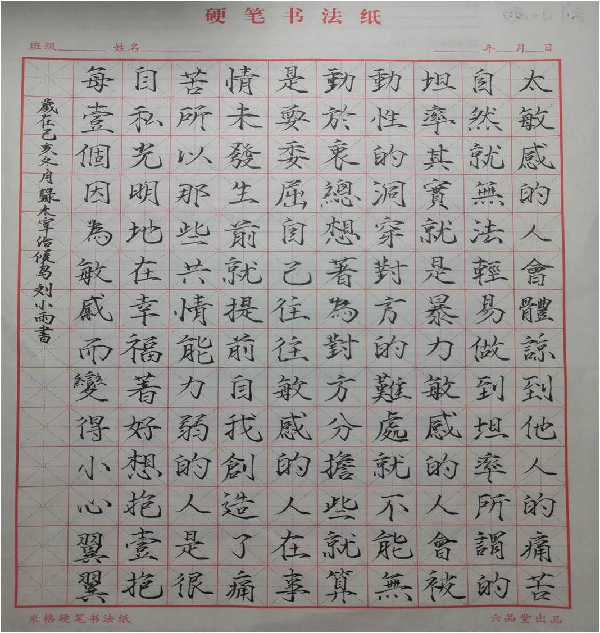 硬笔书法纸
班级 姓名 年 月 日
太敏感的人會體諒到他人的痛苦
自然就無法輕易做到坦率所謂的
坦率其實就是暴力敏感的人會被
動性的洞穿對方的難處就不能無
動於衷總想著為對方分擔些就算
是要委屈自己往往敏感的人在事
情未發生前就提前自我創造了痛
苦所以那些共情能力弱的人是很
自私光明地在幸福著好想抱壹抱
每壹個因為敏感而變得小心翼翼
歲在己亥冬月錄太宰治候鳥刘小雨書
米格硬笔书法纸 六品堂出品